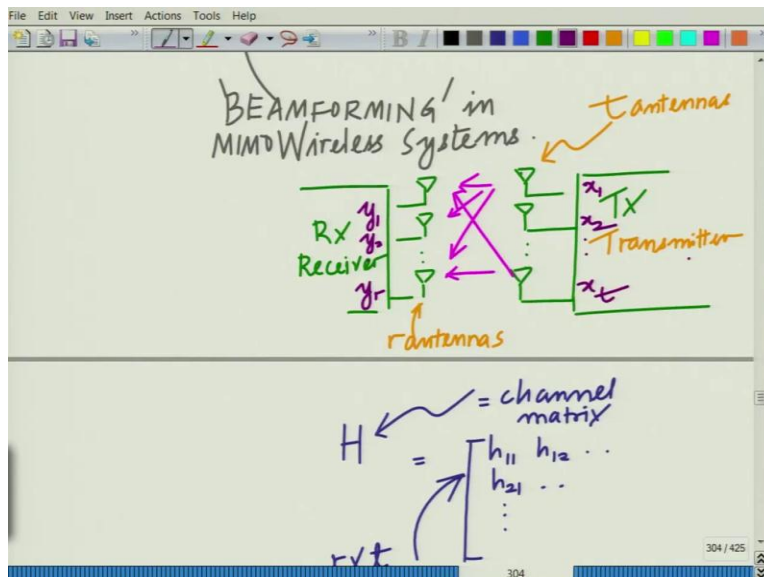 File Edit View Insert Actions Tools Help
B I
'BEAMFORMING' in
MIMO Wireless Systems.
t antennas
y1
y2
⋮
yr
RX
Receiver
x1
x2
⋮
xt
TX
Transmitter
r antennas
H
= channel
matrix
= [ h11 h12 ..
h21 ..
⋮
r×t
304 / 425
304